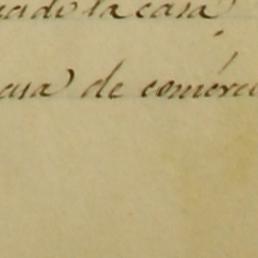 la casa
casa de comerci